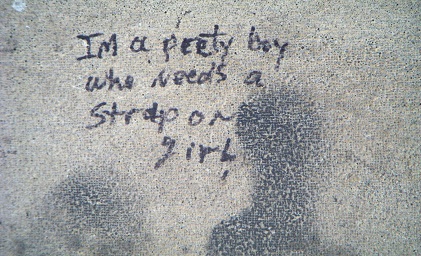 Im a preety boy
who needs a
strap on
girl